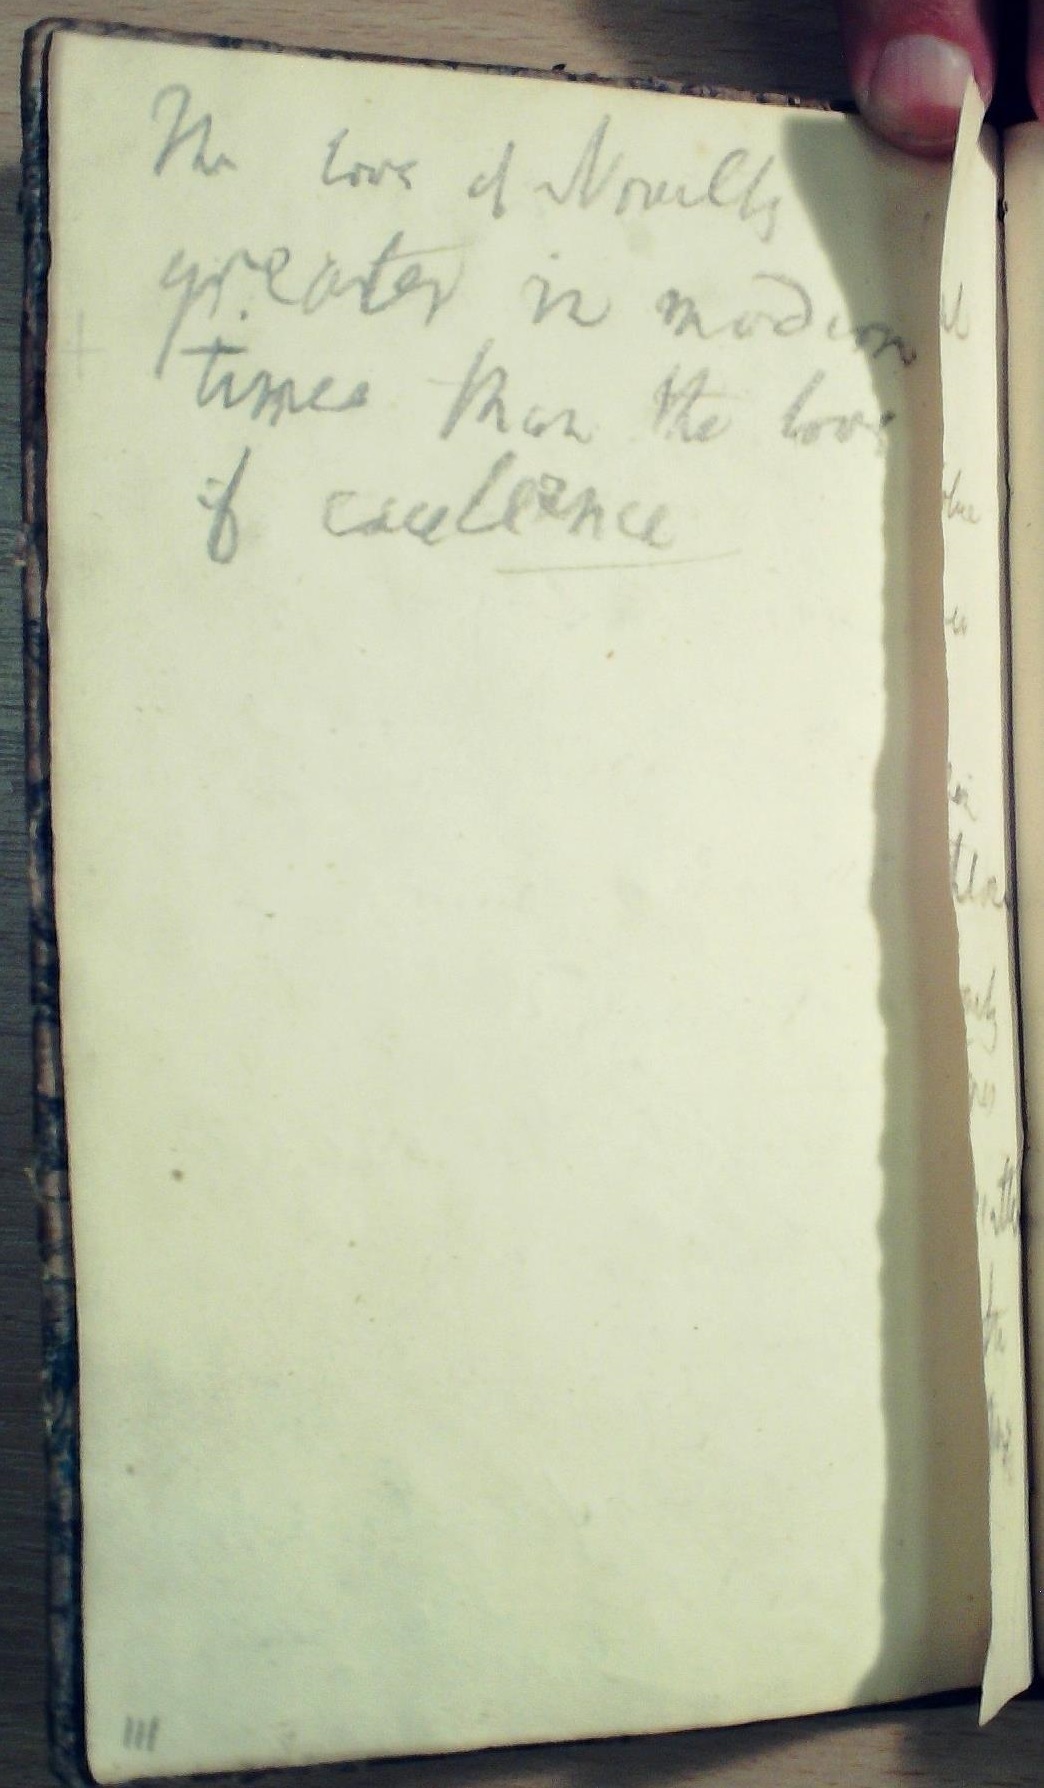 The love of Novelty
greater in modern
times than the love
of excellence
111